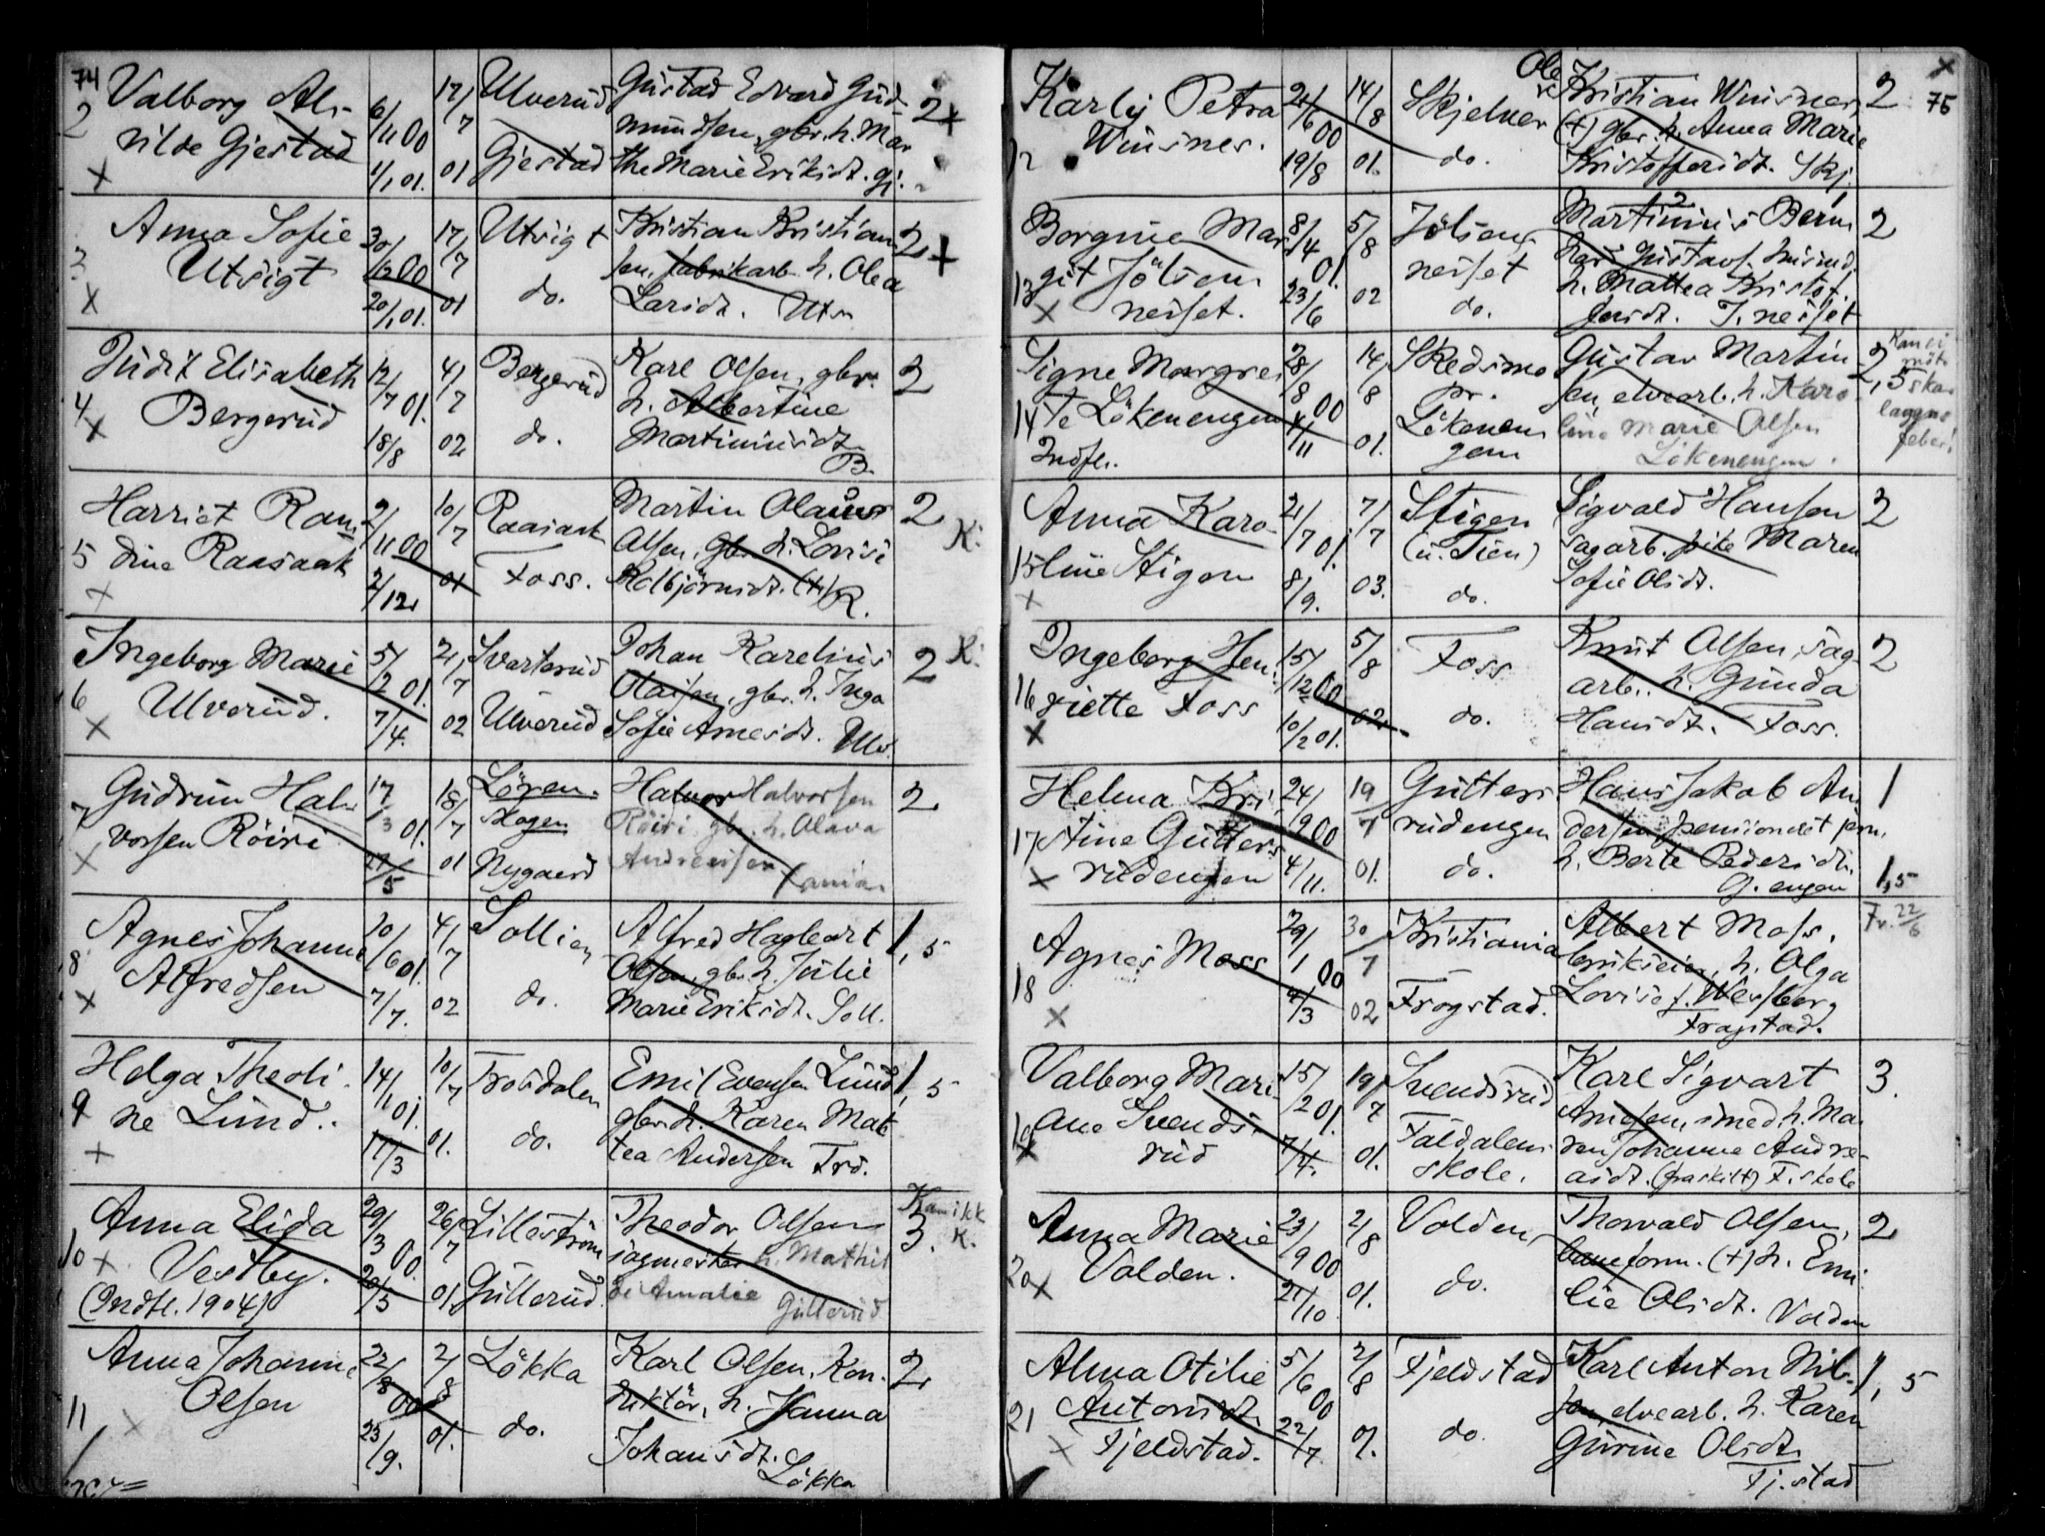 74
2 Valborg Al-
vilde Gjestad
6/11 00
1/1 01.
17/7
01
Ulverud
Gjestad
Gustad Edvard Gud-
mundsen, gbr. h. Mar
the Marie Eriksdt. Gj.
2
3 Anna Sofie
Utsigt
30/12 00
20/1 01.
17/7
01
Utsigt
do.
Kristian Kristian
sen, fabrikarb. h. Olea
Larsdt. Uts.
2
4 Judit Elisabeth
Bergerud
12/7 01.
18/8
4/7
02
Bergerud
do.
Karl Olsen, gbr.
h. Albertine
Martiniusdt.
B.
2
5 Harriet Ran-
dine Raasaak
9/11 00
2/12
10/7
01
Raasaak
Foss.
Martin Olaus
Olsen, gbr. h. Lovise
Kolbjörnsdt. (+) R.
2
K.
6 Ingeborg Marie
Ulverud.
5/2 01.
7/4.
21/7
02
Svarterud
Ulverud
Johan Karelius
Olaisen, gbr. h. Inga
Sofie Arnesdt. Ulv.
2
K.
7 Gudrun Hal-
vorsen Röiri
17/3 01.
27/5
18/7
01
Lögen-
skogen
Nygaard
Halvor Halvorsen
Röiri gbr. h. Olava
Andreassen
2
8 Agnes Johanne
Alfredsen
20/6 01.
7/7.
4/7
02
Sollien
do.
Alfred Hagbart
Olsen, gbr. h. Julie
Marie Eriksdt. Soll.
1,5
9 Helga Theoli-
ne Lund.
14/1 01.
17/3
10/7
01.
Trosdalen
do.
Emil Evensen Lund,
gbr. h. Karen Mat
tea Andersen Tro.
1,5
10 Anna Elida
Vestby.
(Indfl. 1904)
29/3 00.
20/5
26/7
01
Lilleström
Gullerud.
Theodor Olsen
sagmester h. Mathil
de Amalie
Gullerud
3. K.
11 Anna Johanne
Olsen
22/8 00
23/9.
2/8
01.
Lökka
do.
Karl Olsen, Kon-
duktör, h. Hanna
Johansdt.
Lökka
2
75
12 Karly Petra
Winsnes.
21/6 00
19/8
14/8
01.
Skjelver
do.
Ole
Kristian Winsnes,
(+) gbr. h. Anna Marie
Kristoffersdt. Skj.
2
13 Borgine Mar
git Jölsen
neiset.
8/4 01.
23/6
5/8
02
Jölsen
neiset
do.
Martinius Bern
hard Gustavs. husmd.
h. Mattea Kristof
fersdt. J. neiset
2
14 Signe Margre-
te Lökenengen
Indfl.
28/8 00
4/11
14/8
01.
Skedsmo
pr.
Löknen
gen
Gustav Martin
sen, elvearb. h. Karo
line Marie Olsen
Lökenengen.
2,5
15 Anna Karo-
line Stigen
21/7 01.
8/9.
7/7
03.
Stigen
(u. Tien)
do.
Sigvald Hansen
sagarb. pike Maren
Sofie Olsdt.
2
16 Ingeborg Hen-
riette Foss
15/12 00
10/2 01.
5/8
02.
Foss
do.
Knut Olsen, sag-
arb., h. Gunda
Hansdt. Foss.
2
17 Helma Kri-
stine Gutters
rudengen
24/9 00
4/11.
19/7
01.
Gutters-
rudengen
do.
Hans Jakob An-
dersen, pensioneret jern.
h. Berte Pedersdt.
G. engen
1
1,5
18 Agnes Moss
29/1 00
4/3
30/7
02
Kristiania
Frogstad.
Albert Moss,
brukseier, h. Olga
Lovise f. Westberg
Frogstad.
19 Valborg Mari-
ane Svends-
rud
15/2 01.
7/4.
19/7
01.
Svendsrud
Faldalens
skole.
Karl Sigvart
Arnesen, smed h. Ma-
ren Johanne Andre-
asdt. (fraskilt) F. skole
3.
20 Anna Marie
Volden.
23/9 00
21/10
2/8
01.
Volden
do.
Thorvald Olsen,
baneform. (+) h. Emi
lie Olsdt. Volden
2
21 Alma Otilie
Antonsdt.
Fjeldstad.
5/6 00
22/7.
2/8
01.
Fjeldstad
do.
Karl Anton Nils-
sen, elvearb. h. Karen
Gurine Olsdt.
Fj. stad
1,5